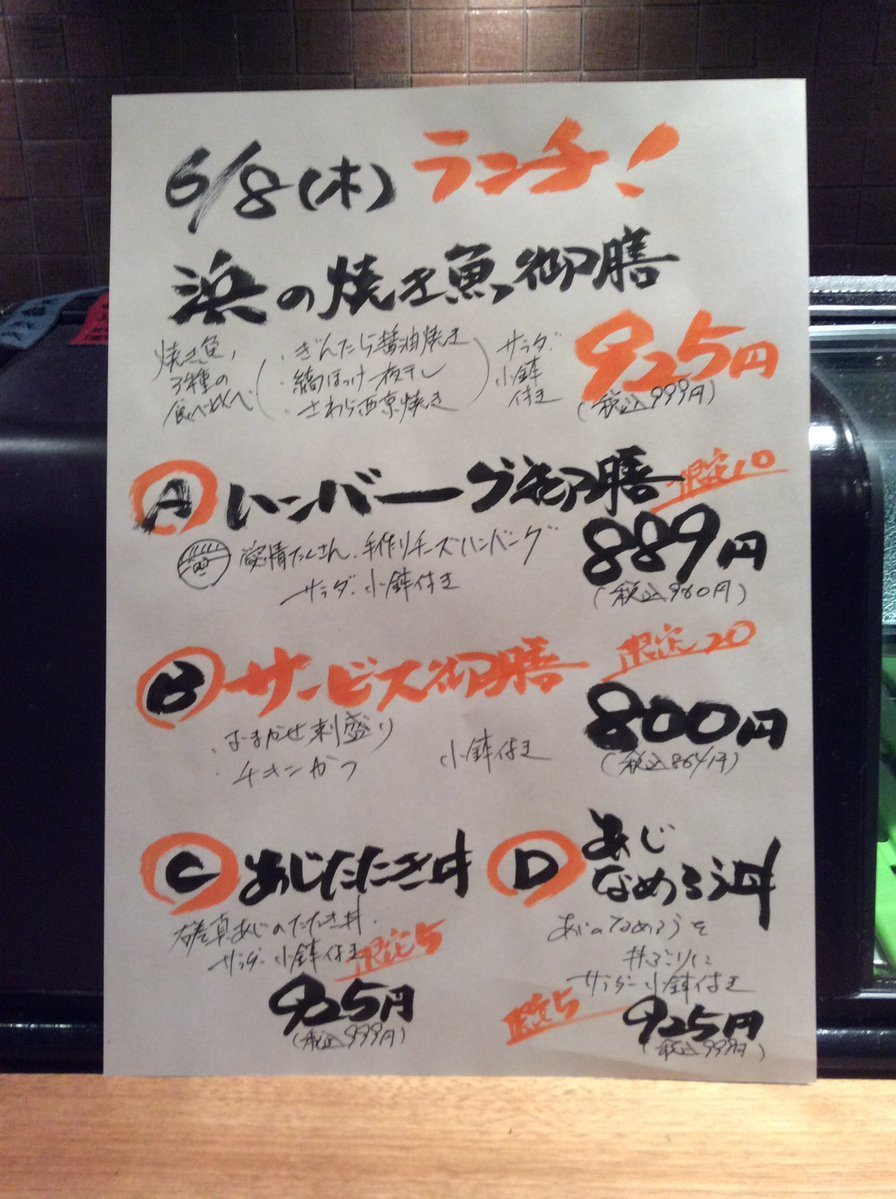 6/8(木) ランチ!
浜の焼き魚御膳
焼き魚、
3種の
食べ比べ
・ぎんだら醤油焼き
・縞ほっけ一夜干し
・さわら西京焼き
サラダ、
小鉢
付き
925円
(税込999円)
A ハンバーグ御膳 限定10
愛情たくさん、手作りチーズハンバーグ
サラダ、小鉢付き
889円
(税込960円)
B サービス御膳 限定20
・おまかせ刺盛り
・チキンかつ
小鉢付き
800円
(税込864円)
C あじたたき丼
真あじのたたき丼、
サラダ、小鉢付き
限定5
925円
(税込999円)
D あじ
なめろう丼
あじのなめろうを
丼ぶりに
サラダ、小鉢付き
限定5
925円
(税込999円)